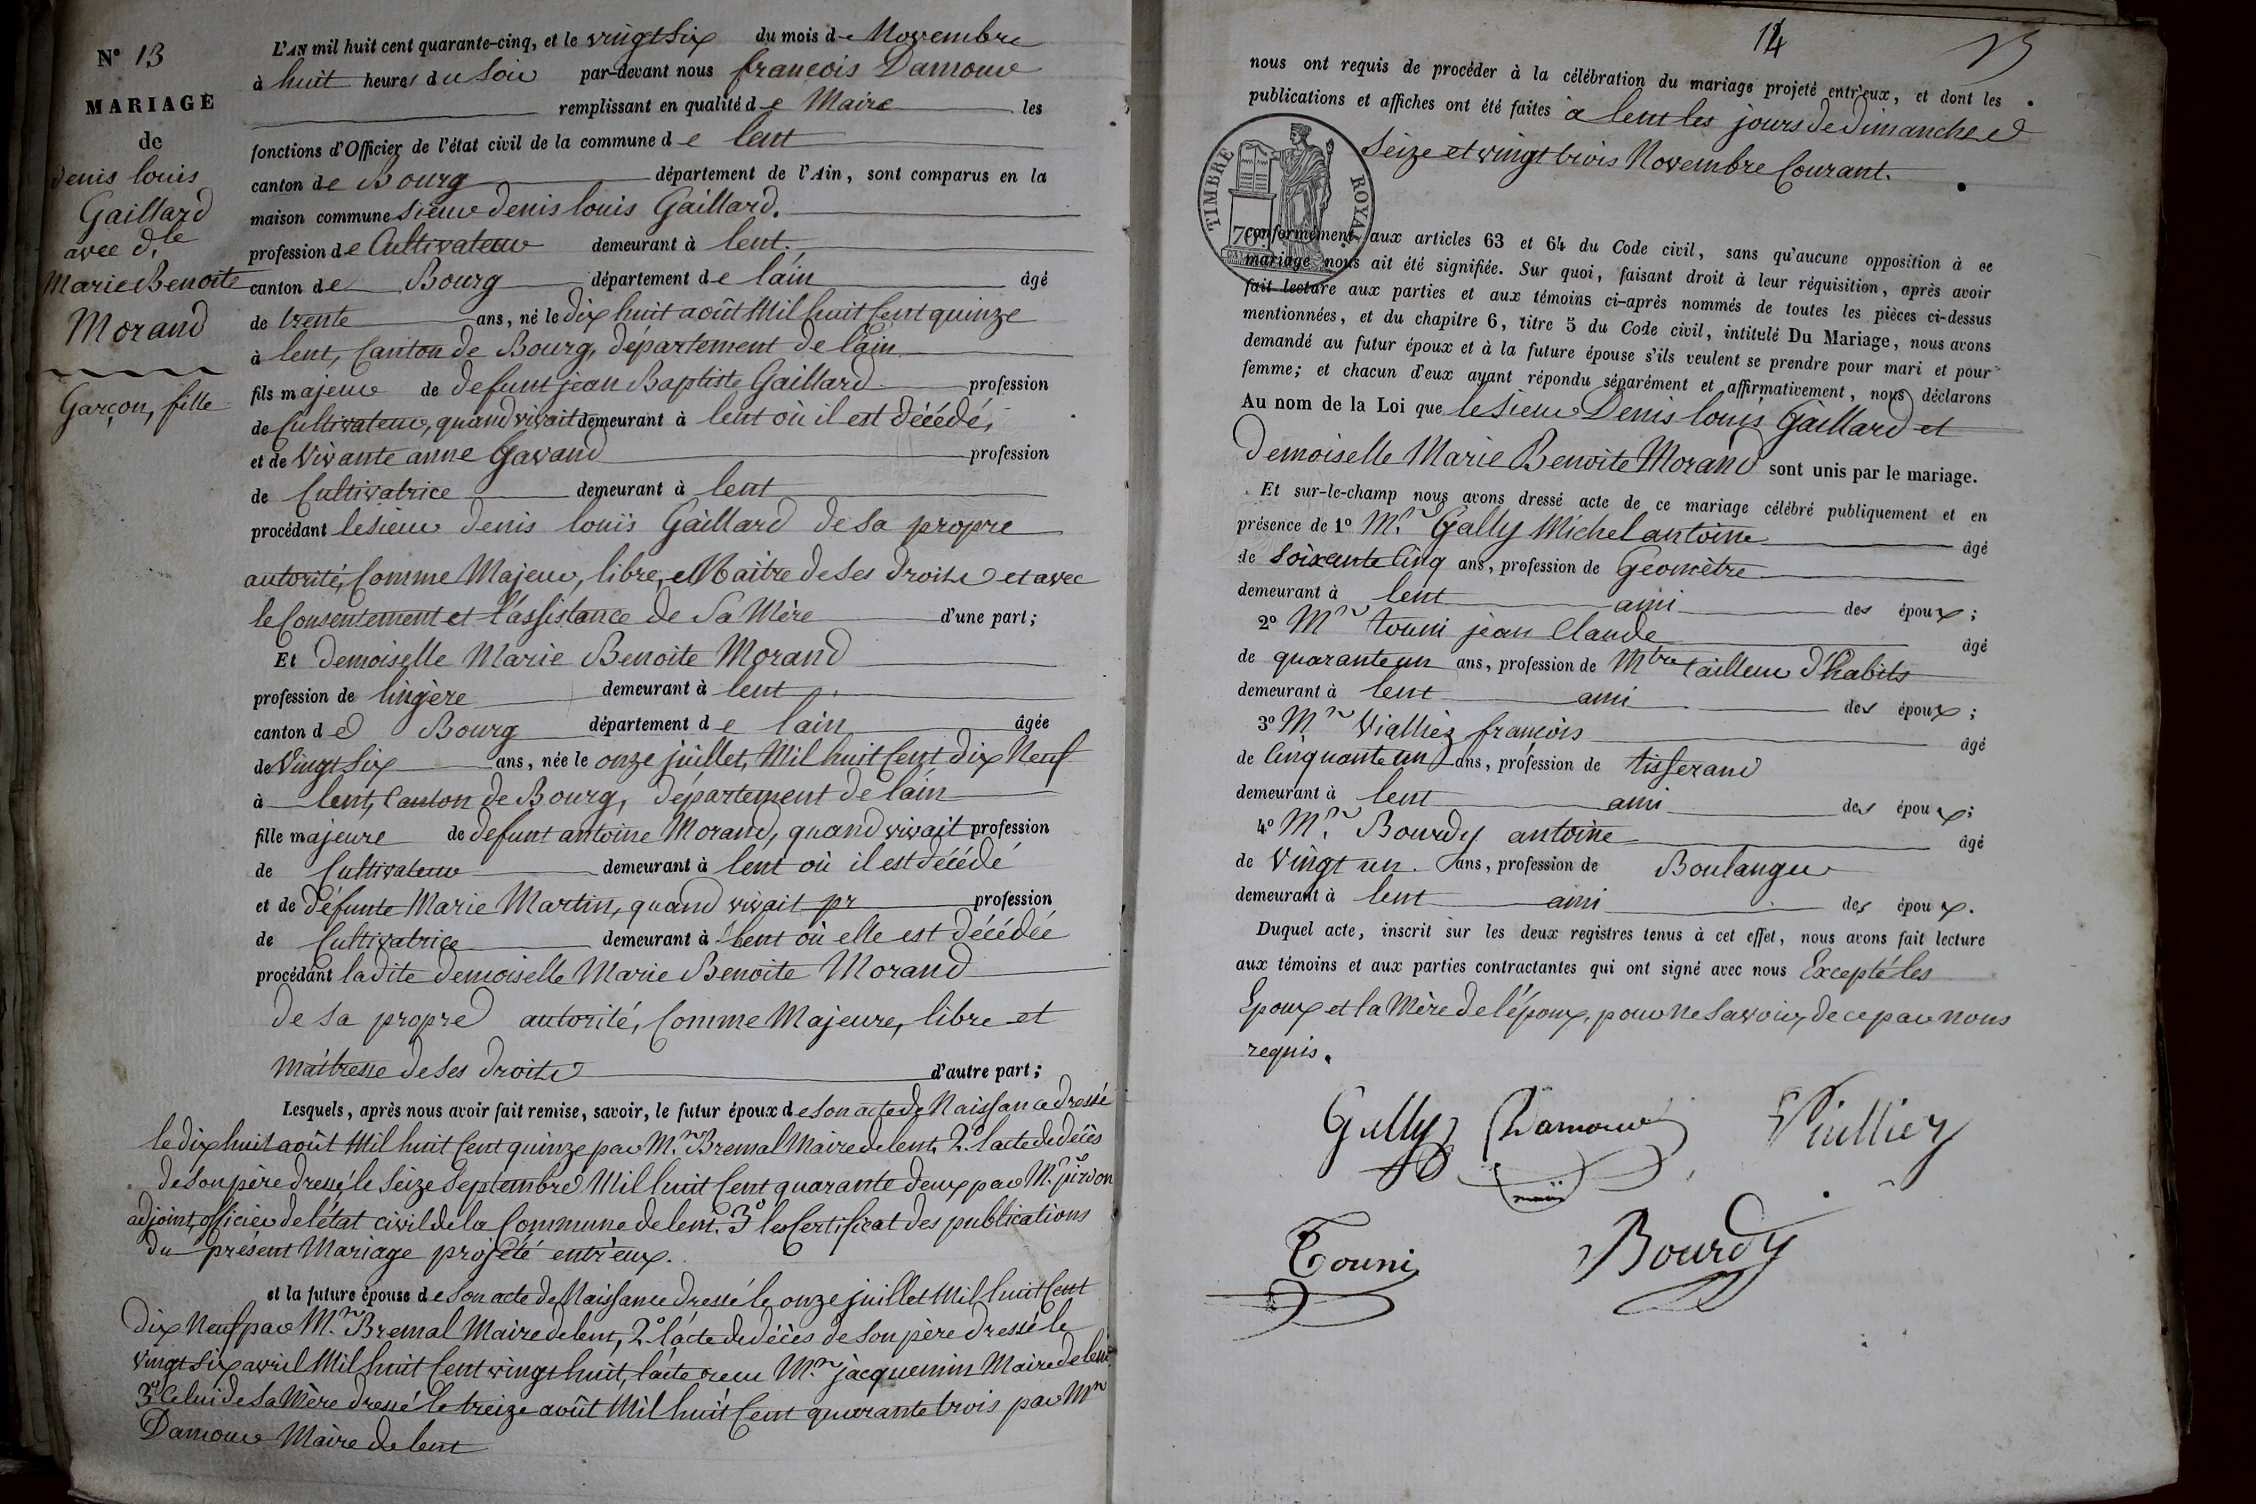 N° 13
MARIAGE
de
denis louis
Gaillard
avec d.le
Marie Benoite
Morand
Garçon, fille
L'AN mil huit cent quarante-cinq, et le vingt Six du mois de Novembre
à huit heures du Soir par-devant nous françois Damour
remplissant en qualité de Maire les
fonctions d'Officier de l'état civil de la commune de lent
canton de Bourg département de l'Ain, sont comparus en la
maison commune Sieur denis louis Gaillard.
profession de Cultivateur demeurant à lent.
canton de Bourg département de l'ain âgé
de trente ans, né le dix huit août Mil huit Cent quinze
à lent, Canton de Bourg, département de l'ain
fils majeur de defunt jean Baptiste Gaillard profession
de Cultivateur, quand vivait demeurant à lent où il est décédé,
et de Vivante anne Gavand profession
de Cultivatrice demeurant à lent
procédant le sieur denis louis Gaillard de sa propre
autorité, Comme Majeur, libre, et Maitre de Ses droits et avec
le Consentement et l'assistance de Sa Mère d'une part;
Et demoiselle Marie Benoite Morand
profession de lingère demeurant à lent
canton de Bourg département de lain âgée
de Vingt Six ans, née le onze juillet, Mil huit Cent dix Neuf
à lent, Canton de Bourg, département de l'ain
fille majeure de defunt antoine Morand, quand vivait profession
de Cultivateur demeurant à lent où il est décédé
et de défunte Marie Martin, quand vivait pr profession
de Cultivatrice demeurant à lent où elle est décédée
procédant ladite demoiselle Marie Benoite Morand
de sa propre autorité, Comme Majeure, libre et
maîtresse de Ses droits d'autre part;
Lesquels, après nous avoir fait remise, savoir, le futur époux de son acte de Naissance dressé
le dix huit août Mil huit Cent quinze par M.r Bremal Maire de lent, 2° l'acte de décès
de son père dressé, le Seize Septembre Mil huit Cent quarante deux par M.r pirdon
adjoint, officier de l'état civil de la Commune de lent. 3° les Certificat des publications
du présent Mariage projété entr'eux.
et la future épouse de Son acte de Naissance dressé le onze juillet Mil huit Cent
dix Neuf par M.r Bremal Maire de lent, 2° l'acte de décès de Son père dressé le
Vingt Six avril Mil huit Cent vingt huit, l'acte reçu M.r jacquemin Maire de lent
3° Celui de Sa Mère dressé le treize août Mil huit Cent quarante trois par Mr
Damour Maire de lent
14
nous ont requis de procéder à la célébration du mariage projeté entr'eux, et dont les
publications et affiches ont été faites à lent les jours de dimanche
Seize et vingt trois Novembre Courant.
TIMBRE ROYAL
70c
conformément aux articles 63 et 64 du Code civil, sans qu'aucune opposition à ce
mariage nous ait été signifiée. Sur quoi, faisant droit à leur réquisition, après avoir
fait lecture aux parties et aux témoins ci-après nommés de toutes les pièces ci-dessus
mentionnées, et du chapitre 6, titre 5 du Code civil, intitulé Du Mariage, nous avons
demandé au futur époux et à la future épouse s'ils veulent se prendre pour mari et pour
femme; et chacun d'eux ayant répondu séparément et affirmativement, nous déclarons
Au nom de la Loi que le Sieur Denis louis Gaillard et
demoiselle Marie Benoite Morand sont unis par le mariage.
Et sur-le-champ nous avons dressé acte de ce mariage célébré publiquement et en
présence de 1° M.r Gally Michel antoine âgé
de Soixante Cinq ans, profession de Géomètre
demeurant à lent ami des époux;
2° Mr touni jean Claude âgé
de quarante un ans, profession de Mtre tailleur d'habits
demeurant à lent ami des époux;
3° Mr Vialliez françois âgé
de Cinquante un ans, profession de tisserand
demeurant à lent ami des époux;
4° M.r Bourdy antoine âgé
de Vingt un ans, profession de Boulanger
demeurant à lent ami des époux.
Duquel acte, inscrit sur les deux registres tenus à cet effet, nous avons fait lecture
aux témoins et aux parties contractantes qui ont signé avec nous Excepté les
Epoux et la Mère de l'époux, pour ne Savoir, de ce par nous
requis.
Gally Damour Vialliez
maire
Touni Bourdy